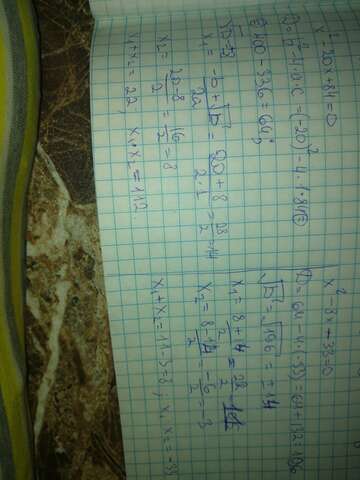 x² - 20x + 84 = 0
D = b² - 4·a·c = (-20)² - 4·1·84 =
= 400 - 336 = 64;
√D = 8
x₁ = (-b + √D)/2a = (20 + 8)/(2·1) = 28/2 = 14
x₂ = (20 - 8)/2 = 16/2 = 8
x₁ + x₂ = 22, x₁·x₂ = 112
x² - 8x - 33 = 0
D = 64 - 4·(-33) = 64 + 132 = 196
√D = √196 = ±14
x₁ = (8 + 14)/2 = 22/2 = 11
x₂ = (8 - 14)/2 = -6/2 = -3
x₁ + x₂ = 11 - 3 = 8; x₁·x₂ = -33